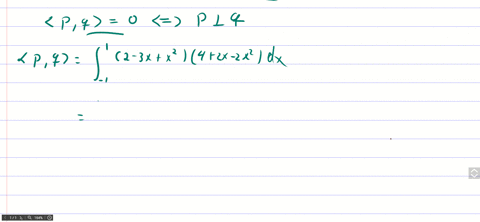 < p, q > = 0 <=> p ⊥ q
< p, q > = ∫_{-1}^{1} (2-3x+x²)(4+2x-2x²) dx
=